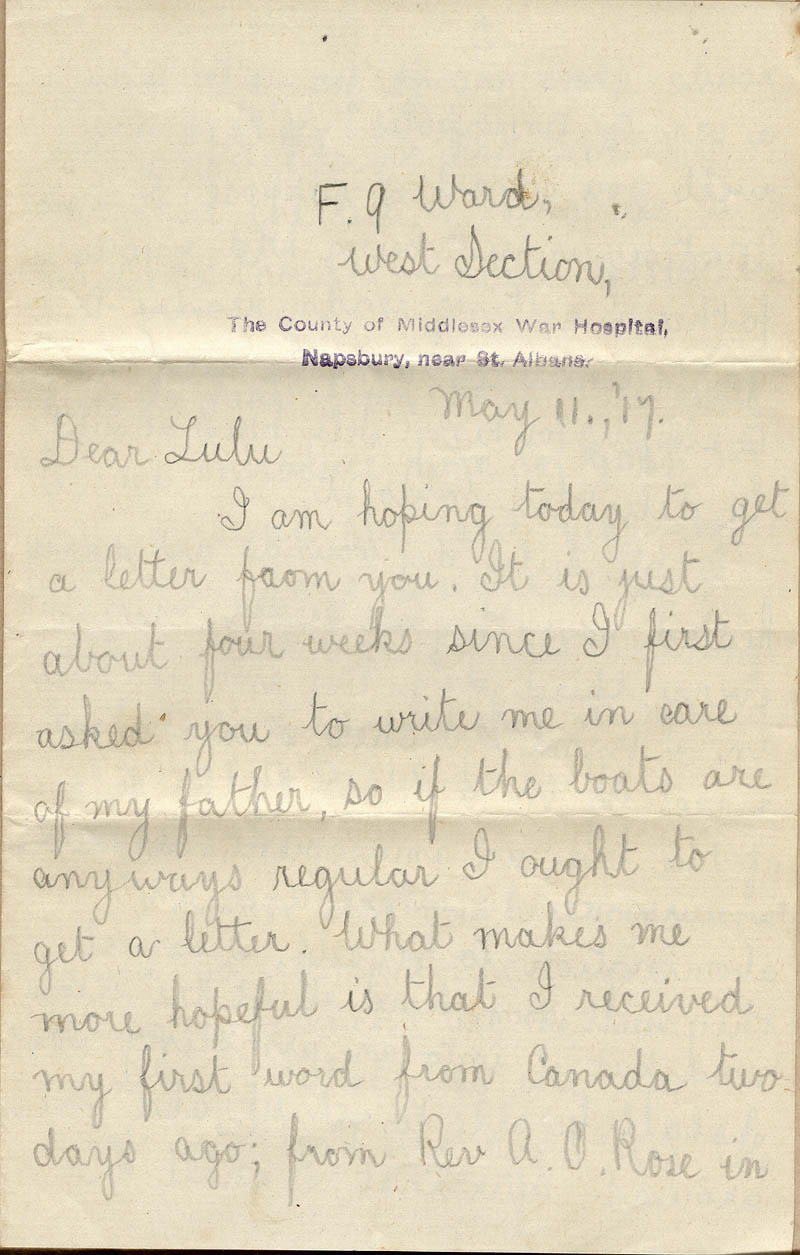 F. 9 Ward,
West Section,
The County of Middlesex War Hospital,
Napsbury, near St. Albans.
May 11., '17.
Dear Lulu
I am hoping today to get
a letter faom you. It is just
about four weeks since I first
asked you to write me in care
of my father, so if the boats are
anyways regular I ought to
get a letter. What makes me
more hopeful is that I received
my first word from Canada two
days ago; from Rev A. O. Rose in